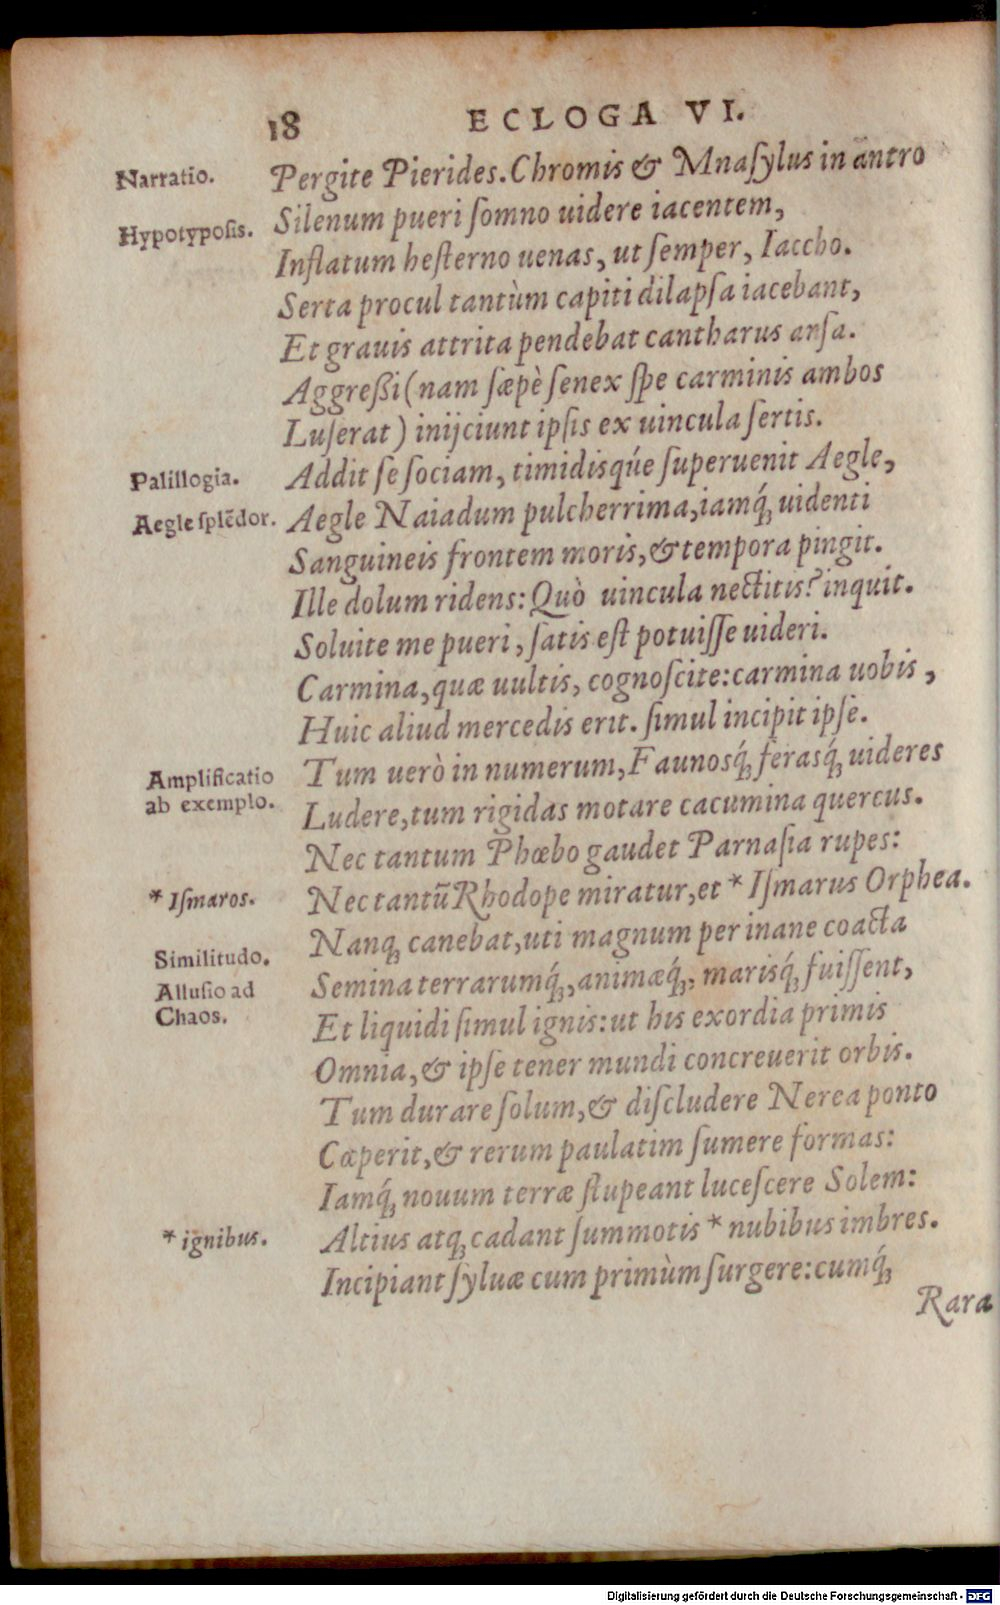 18 ECLOGA VI.
Narratio. Pergite Pierides. Chromis & Mnaſylus in antro
Silenum pueri ſomno uidere iacentem,
Hypotypoſis.
Inflatum heſterno uenas, ut ſemper, Iaccho.
Serta procul tantùm capiti dilapſa iacebant,
Et grauis attrita pendebat cantharus anſa.
Aggreßi (nam ſæpè ſenex ſpe carminis ambos
Luſerat) inijciunt ipſis ex uincula ſertis.
Palillogia. Addit ſe ſociam, timidisqúe ſuperuenit Aegle,
Aegle ſplẽdor. Aegle Naiadum pulcherrima, iamq́ꝫ uidenti
Sanguineis frontem moris, & tempora pingit.
Ille dolum ridens: Quò uincula nectitis? inquit.
Soluite me pueri, ſatis eſt potuiſſe uideri.
Carmina, quæ uultis, cognoſcite: carmina uobis,
Huic aliud mercedis erit. ſimul incipit ipſe.
Amplificatio Tum uerò in numerum, Faunosq́ꝫ ferasq́ꝫ uideres
ab exemplo.
Ludere, tum rigidas motare cacumina quercus.
Nec tantum Phœbo gaudet Parnaſia rupes:
* Iſmaros. Nec tantũ Rhodope miratur, et * Iſmarus Orphea.
Nanqꝫ canebat, uti magnum per inane coacta
Similitudo.
Semina terrarumq́ꝫ, animæq́ꝫ, marisq́ꝫ fuiſſent,
Alluſio ad
Chaos.
Et liquidi ſimul ignis: ut his exordia primis
Omnia, & ipſe tener mundi concreuerit orbis.
Tum durare ſolum, & diſcludere Nerea ponto
Cœperit, & rerum paulatim ſumere formas:
Iamq́ꝫ nouum terræ ſtupeant luceſcere Solem:
* ignibus. Altius atqꝫ cadant ſummotis * nubibus imbres.
Incipiant ſyluæ cum primùm ſurgere: cumq́ꝫ
Rara
Digitalisierung gefördert durch die Deutsche Forschungsgemeinschaft - DFG